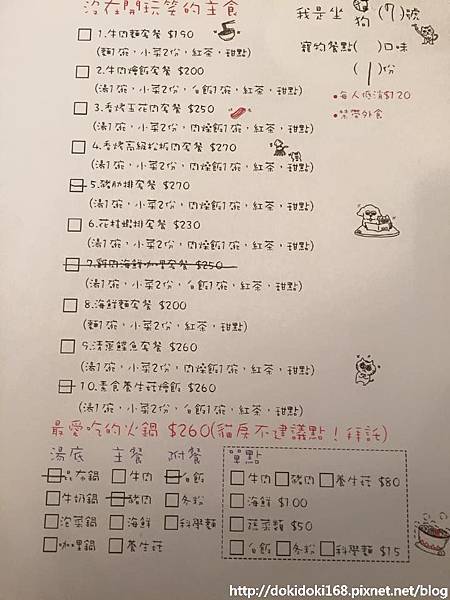 沒在開玩笑的主食
我是坐狗(7)號
寵物餐點( )口味
(1)份
•每人低消$120
•禁帶外食
1.牛肉麵套餐 $190
(麵1碗,小菜2份,紅茶,甜點)
2.牛肉燴飯套餐 $200
(湯1碗,小菜2份,白飯1碗,紅茶,甜點)
3.香烤五花肉套餐 $250
(湯1碗,小菜2份,肉燥飯1碗,紅茶,甜點)
4.香烤高級松板肉套餐 $270
(湯1碗,小菜2份,肉燥飯1碗,紅茶,甜點)
5.豬肋排套餐 $270
(湯1碗,小菜2份,肉燥飯1碗,紅茶,甜點)
6.花枝蝦排套餐 $230
(湯1碗,小菜2份,肉燥飯1碗,紅茶,甜點)
7.雞肉海鮮咖哩套餐 $250
(湯1碗,小菜2份,白飯1碗,紅茶,甜點)
8.海鮮麵套餐 $200
(麵1碗,小菜2份,紅茶,甜點)
9.清蒸鱈魚套餐 $260
(湯1碗,小菜2份,肉燥飯1碗,紅茶,甜點)
10.素食養生菇燴飯 $260
(湯1碗,小菜2份,白飯1碗,紅茶,甜點)
最愛吃的火鍋 $260(貓房不建議點!拜託)
湯底 主餐 附餐 單點
昆布鍋 牛肉 白飯 牛肉 豬肉 養生菇 $80
牛奶鍋 豬肉 冬粉 海鮮 $100
泡菜鍋 海鮮 科學麵 蔬菜類 $50
咖哩鍋 養生菇 白飯 冬粉 科學麵 $15
http://dokidoki168.pixnet.net/blog